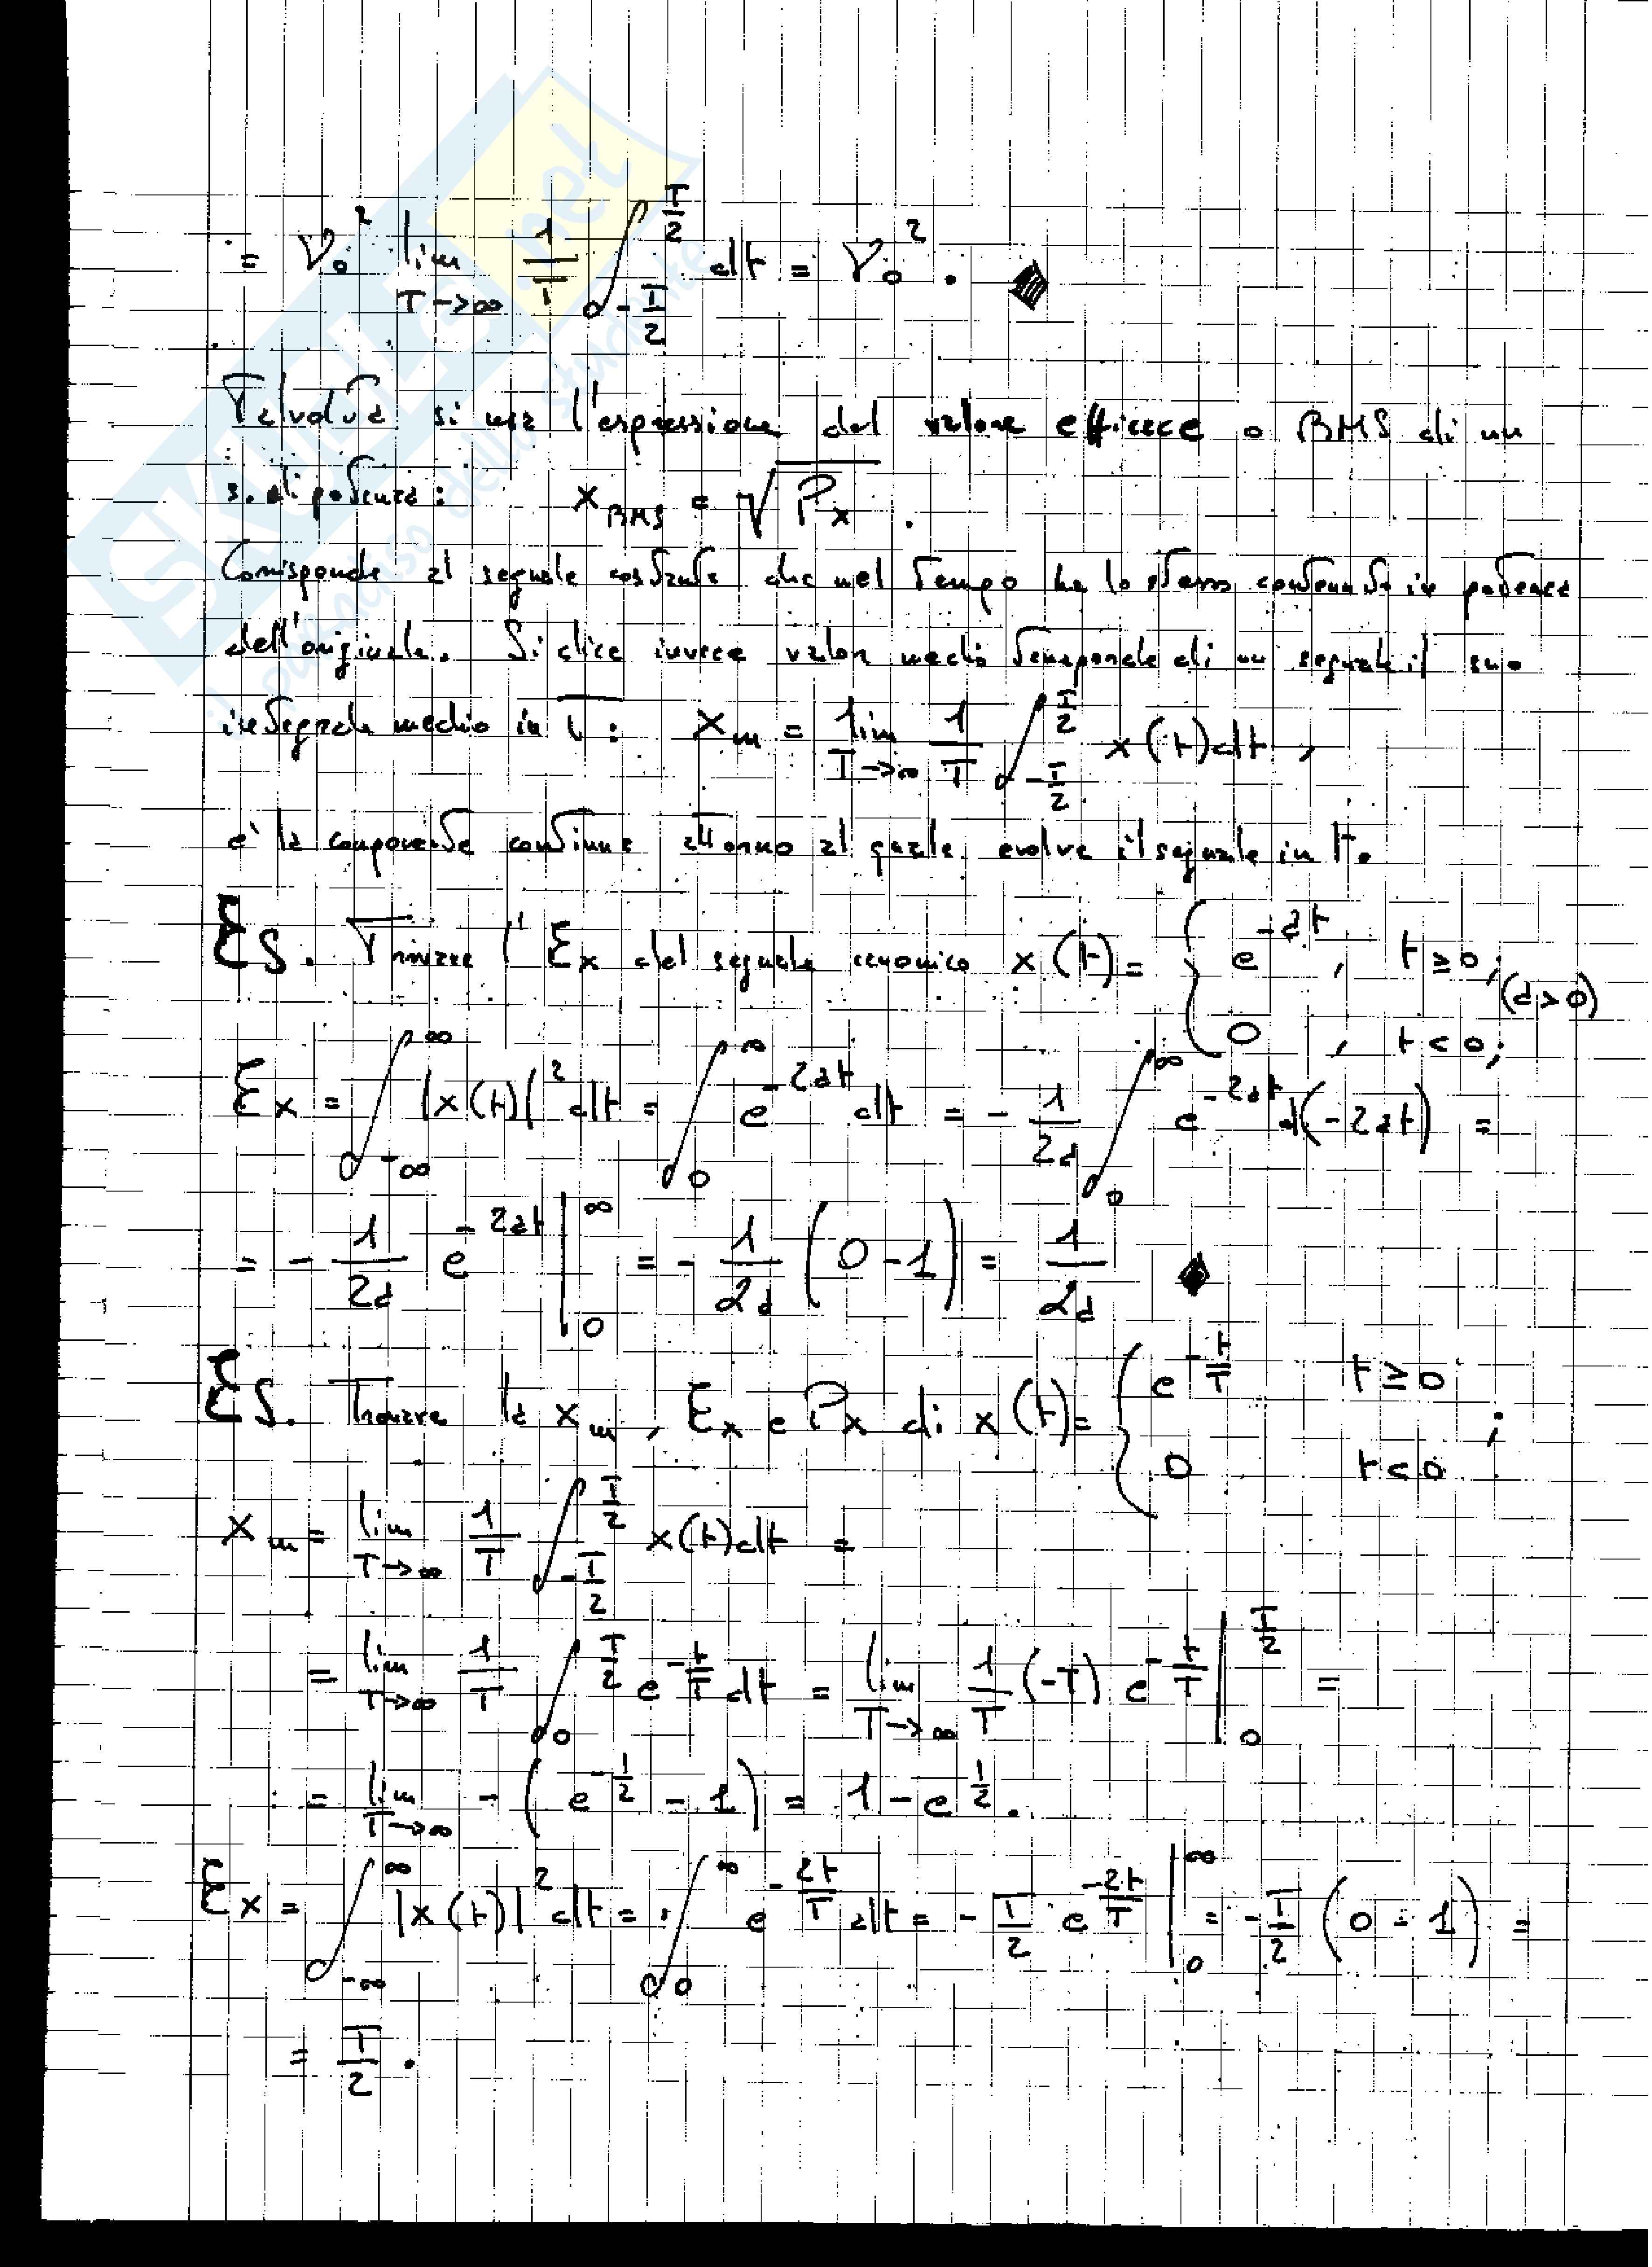 = V₀² lim T→∞ 1/T ∫_{-T/2}^{T/2} dt = V₀².
Talvolta si usa l'espressione del valore efficace o RMS di un
s. di potenza: x_RMS = √Pₓ.
Corrisponde al segnale costante che nel tempo ha lo stesso contenuto in potenza
dell'originale. Si dice invece valor medio temporale di un segnale il suo
integrale medio in T: x_m = lim T→∞ 1/T ∫_{-T/2}^{T/2} x(t)dt,
e' la componente continua attorno al quale evolve il segnale in t.
ES. Trovare l'Eₓ del segnale x(t) = { e^{-at}, t ≥ 0; 0, t < 0; (a>0)
Eₓ = ∫_{-∞}^{∞} |x(t)|² dt = ∫_0^∞ e^{-2at} dt = - 1/2a ∫_0^∞ e^{-2at} d(-2at) =
= - 1/2a e^{-2at} |_0^∞ = - 1/2a (0 - 1) = 1/2a
ES. Trovare la x_m, Eₓ e Pₓ di x(t) = { e^{-t/T} t ≥ 0; 0 t < 0 ;
x_m = lim T→∞ 1/T ∫_{-T/2}^{T/2} x(t)dt =
= lim T→∞ 1/T ∫_0^{T/2} e^{-t/T} dt = lim T→∞ 1/T (-T) e^{-t/T} |_0^{T/2} =
= lim T→∞ - (e^{-1/2} - 1) = 1 - e^{1/2}.
Eₓ = ∫_{-∞}^{∞} |x(t)|² dt = ∫_0^∞ e^{-2t/T} dt = - T/2 e^{-2t/T} |_0^∞ = - T/2 (0 - 1) =
= T/2.
SKUOLA.net